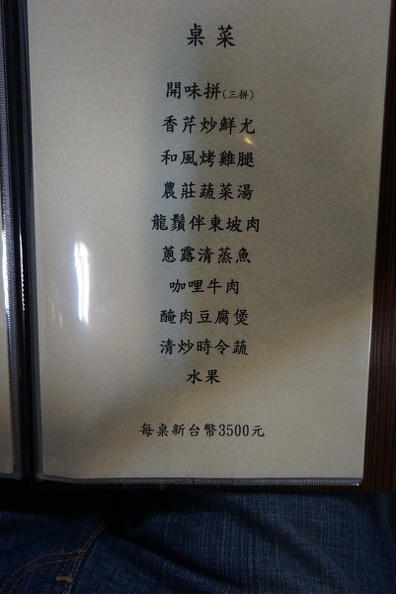 桌菜
開味拼(三拼)
香芹炒鮮尤
和風烤雞腿
農莊蔬菜湯
龍鬚伴東坡肉
蔥露清蒸魚
咖哩牛肉
醃肉豆腐煲
清炒時令蔬
水果
每桌新台幣3500元